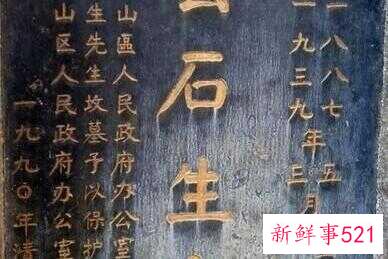 一八八七年五月
一九三九年三月
石生
山區人民政府办公室
生先生坟墓予以保护
山区人民政府办公室
一九九〇年清
新鲜事521